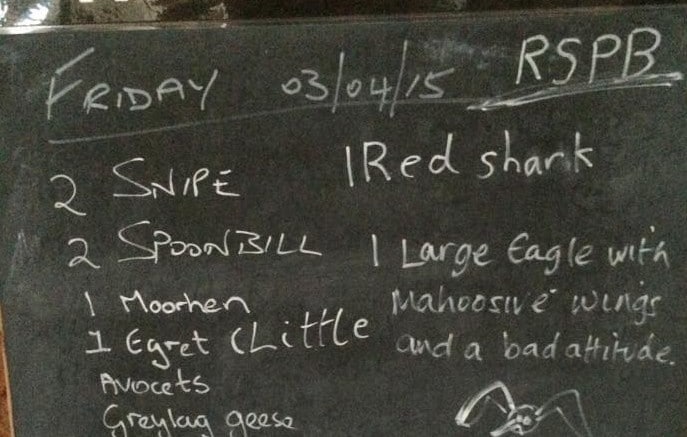 FRIDAY 03/04/15 RSPB
2 SNIPE
2 SPOONBILL
1 Moorhen
1 Egret (Little
Avocets
Greylag geese
1 Red shank
1 Large Eagle with
Mahoosive wings
and a bad attitude.